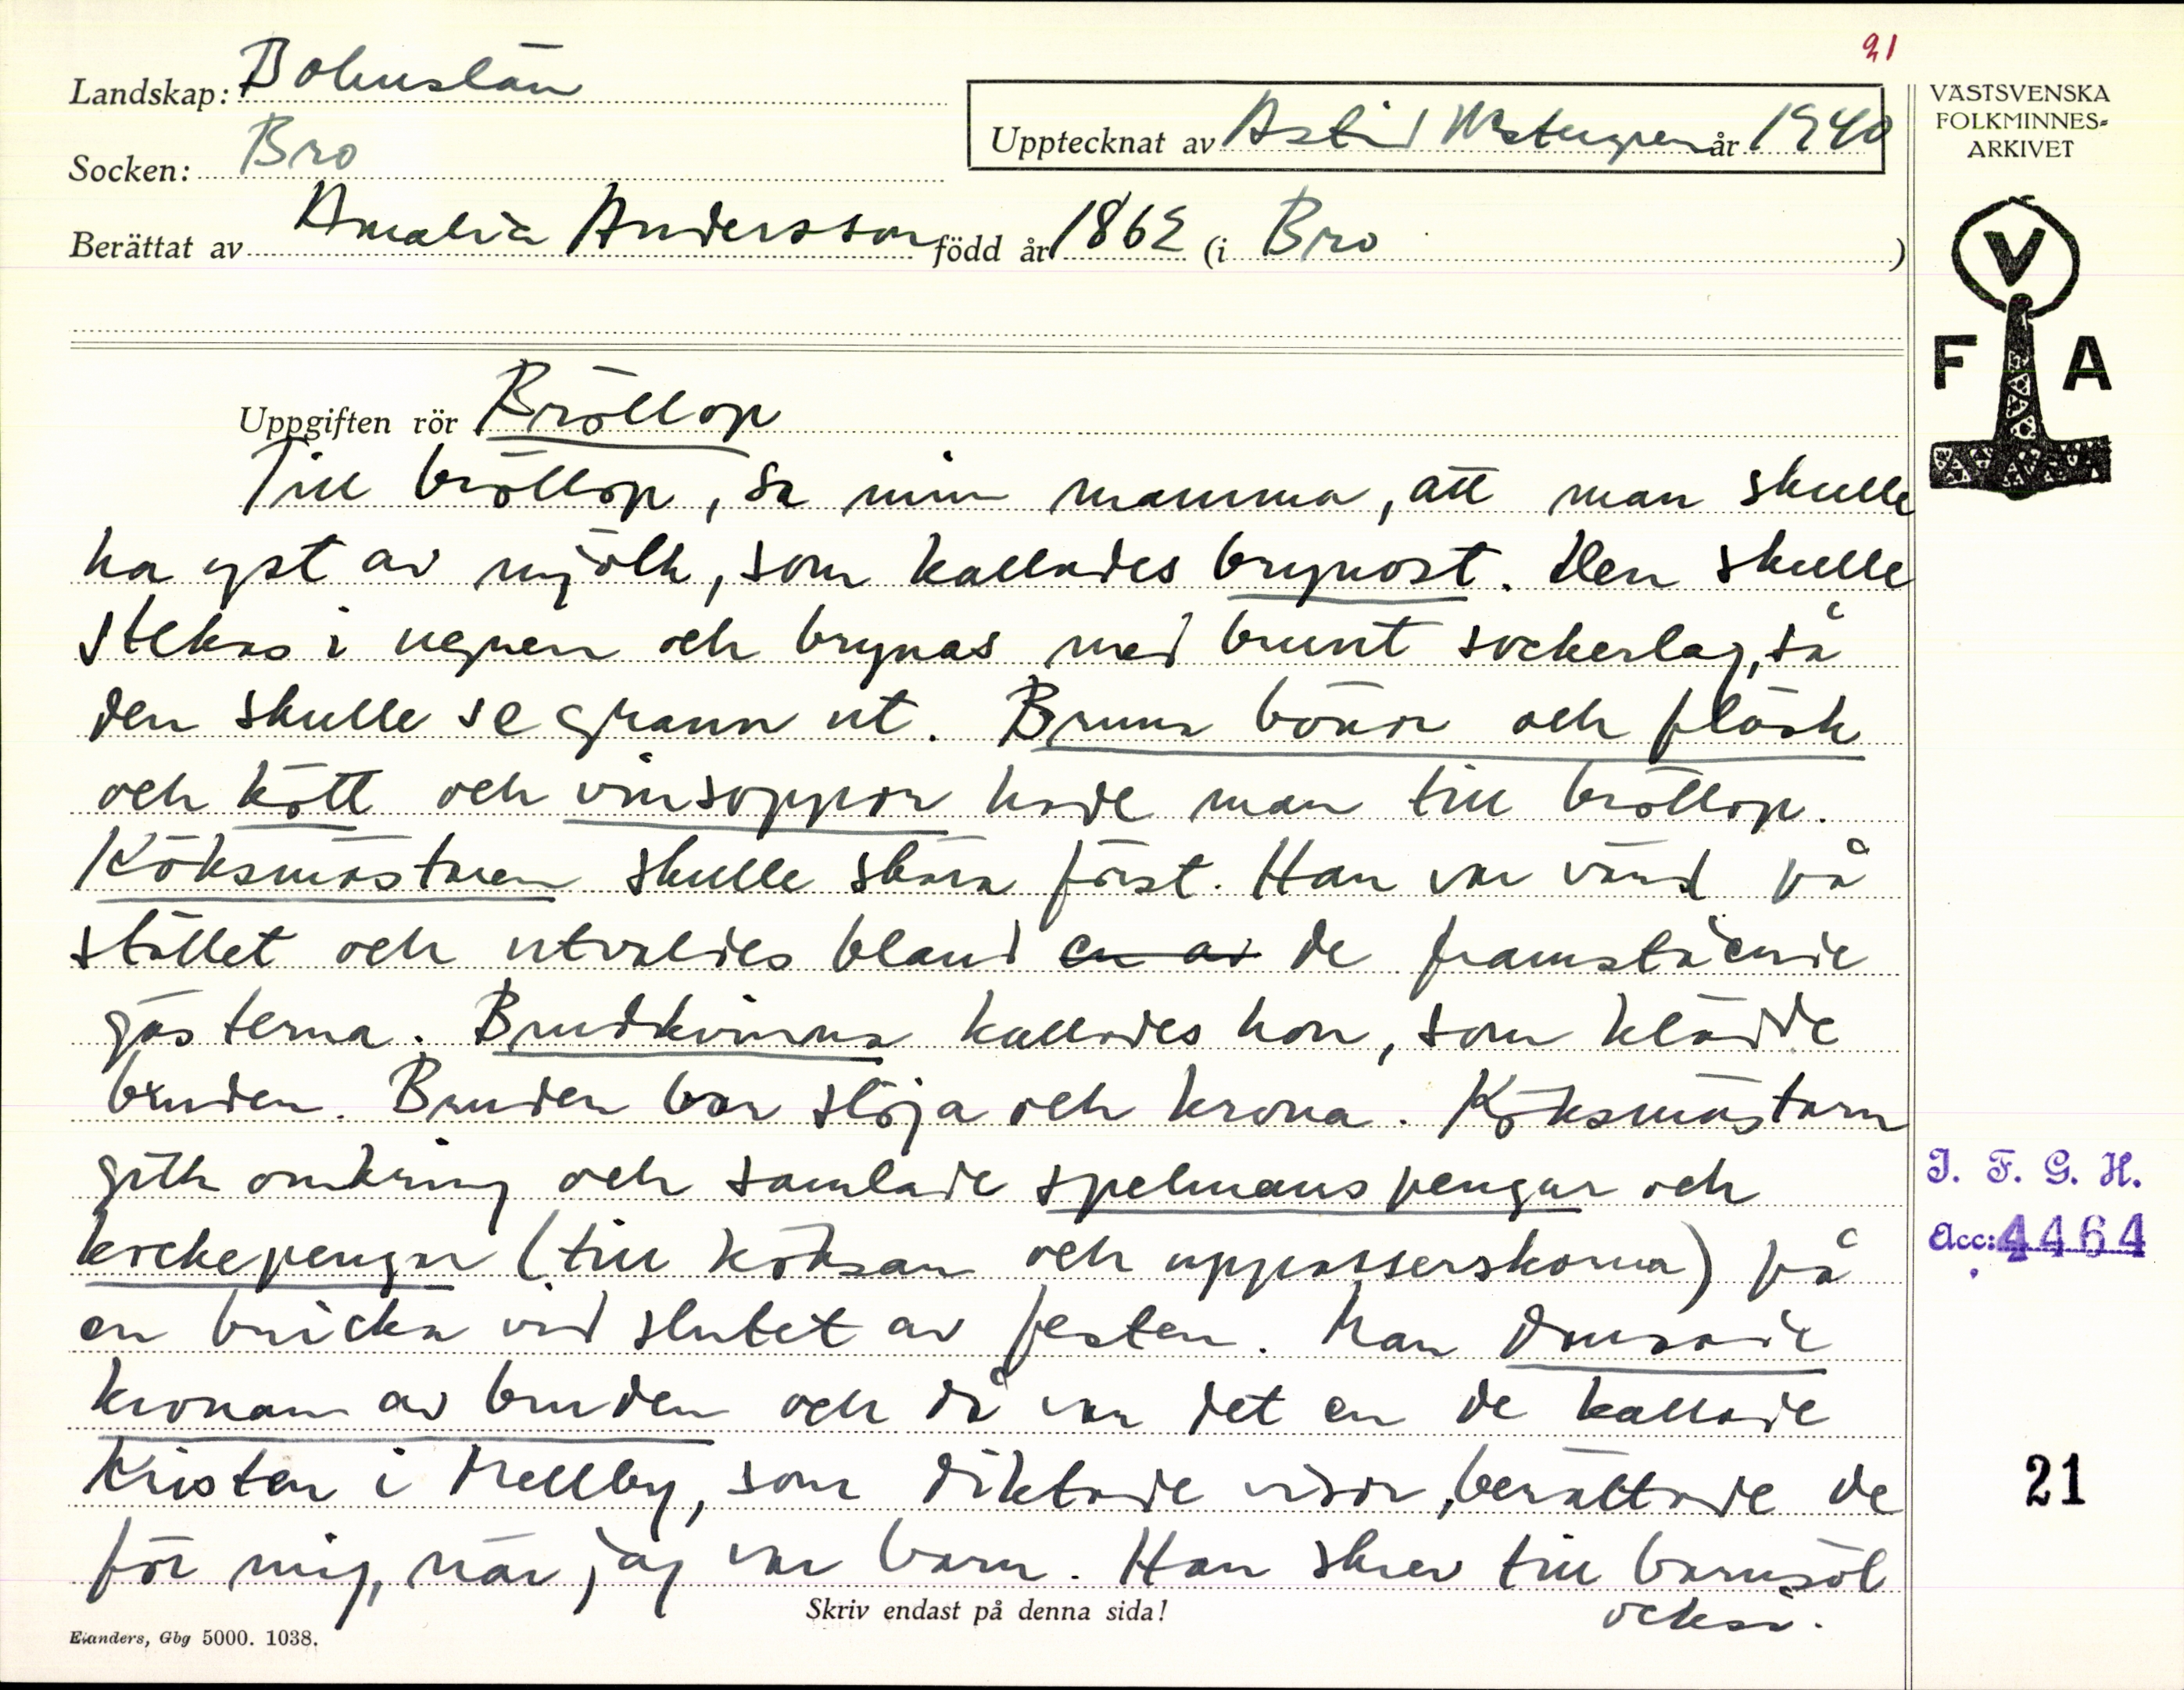 21
Landskap: Bohuslän
Upptecknat av Astrid år 1940
Socken: Bro
Berättat av Amalia Andersson född år 1862 (i Bro )
VÄSTSVENSKA
FOLKMINNES-
ARKIVET
V
F A
Uppgiften rör Bröllop
Till bröllop, sa min mamma, att man skulle
ha yst av mjölk, som kallades brynost. Den skulle
stekas i ugnen och brynas med brunt sockerlag, så
den skulle se grann ut. Bruna bönor och fläsk
och kött och vinsoppor hade man till bröllop.
Köksmästaren skulle skära först. Han var värd på
stället och utvaldes bland en av de framstående
gästerna. Brudkvinna kallades hon, som klädde
bruden. Bruden bar slöja och krona. Köksmästarn
gick omkring och samlade spelmanspengar och
kockepengar (till köksan och uppasserskorna) på
en bricka vid slutet av festen. Man dansade
kronan av bruden och då var det en de kallade
Kristen i Mellby, som diktade visor, berättade de
för mig, när jag var barn. Han skrev till barnsöl
också.
I. F. G. H.
Acc: 4464
21
Skriv endast på denna sida!
Elanders, Gbg 5000. 1038.